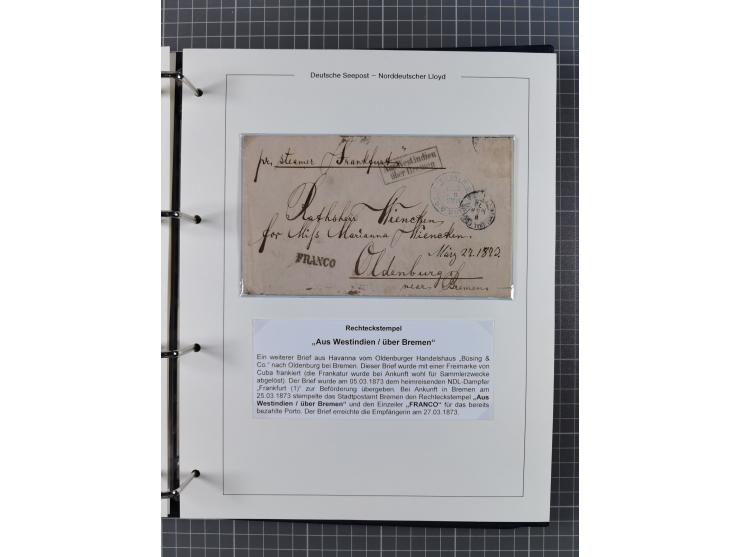 Deutsche Seepost – Norddeutscher Lloyd
pr. steamer „Frankfurt"
Aus Westindien
über Bremen
Rathsherr Wiencken,
for Miſs Marianna Wiencken.
März 27. 1872.
FRANCO
Oldenburg
near Bremen
Rechteckstempel
„Aus Westindien / über Bremen"
Ein weiterer Brief aus Havanna vom Oldenburger Handelshaus „Büsing &
Co." nach Oldenburg bei Bremen. Dieser Brief wurde mit einer Freimarke von
Cuba frankiert (die Frankatur wurde bei Ankunft wohl für Sammlerzwecke
abgelöst). Der Brief wurde am 05.03.1873 dem heimreisenden NDL-Dampfer
„Frankfurt (1)" zur Beförderung übergeben. Bei Ankunft in Bremen am
25.03.1873 stempelte das Stadtpostamt Bremen den Rechteckstempel „Aus
Westindien / über Bremen" und den Einzeiler „FRANCO" für das bereits
bezahlte Porto. Der Brief erreichte die Empfängerin am 27.03.1873.